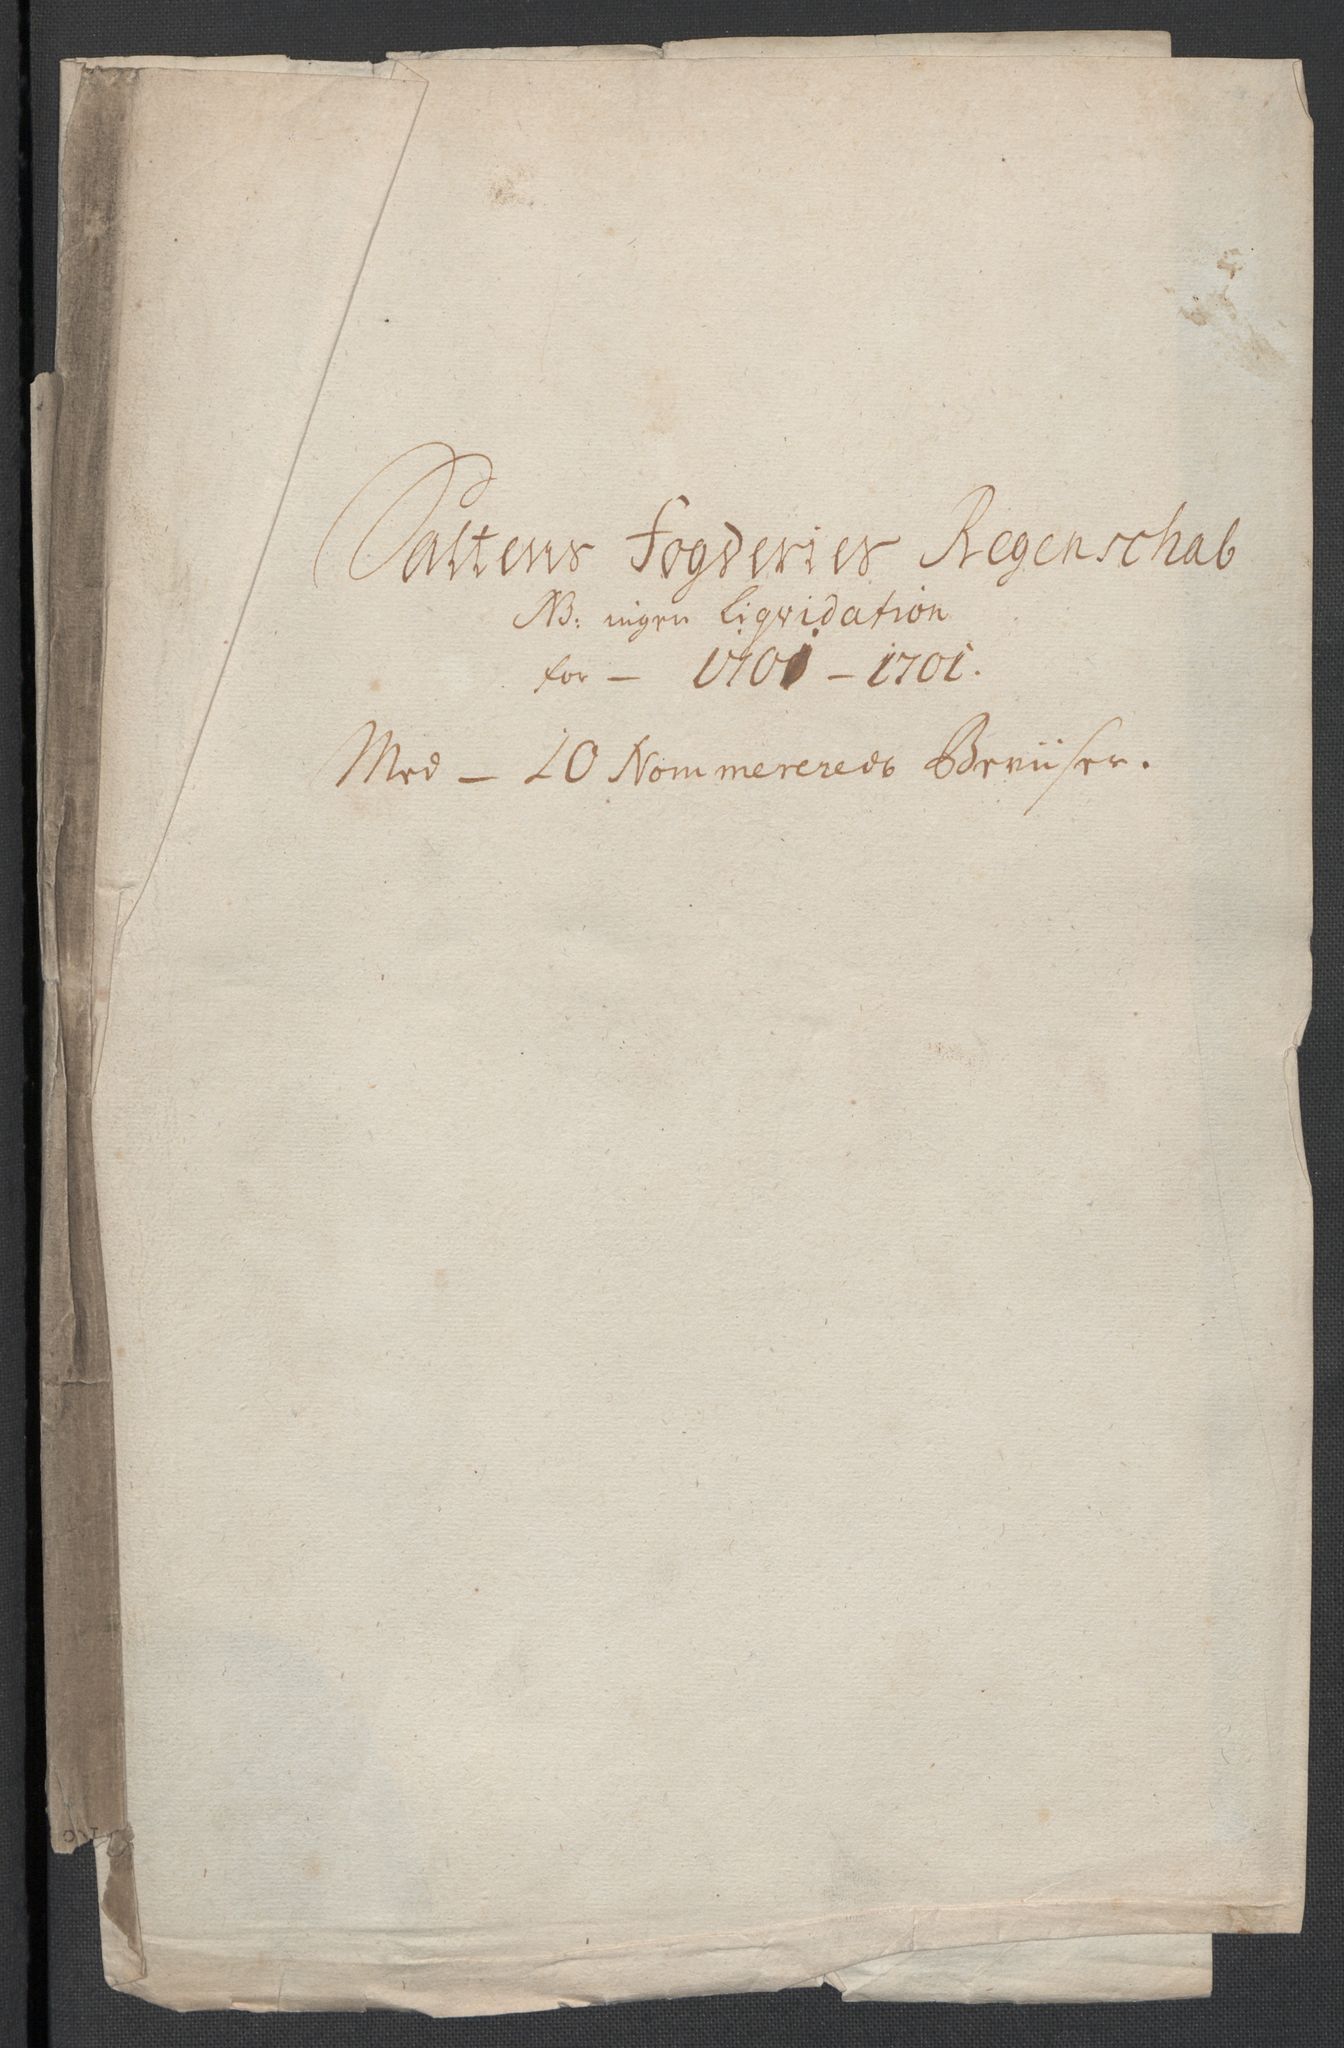 Saltens Fogderies Regenschab
NB: ingen liqvidation
for — 1701 — 1701.
Med — 10 Nommererede Beviiser.